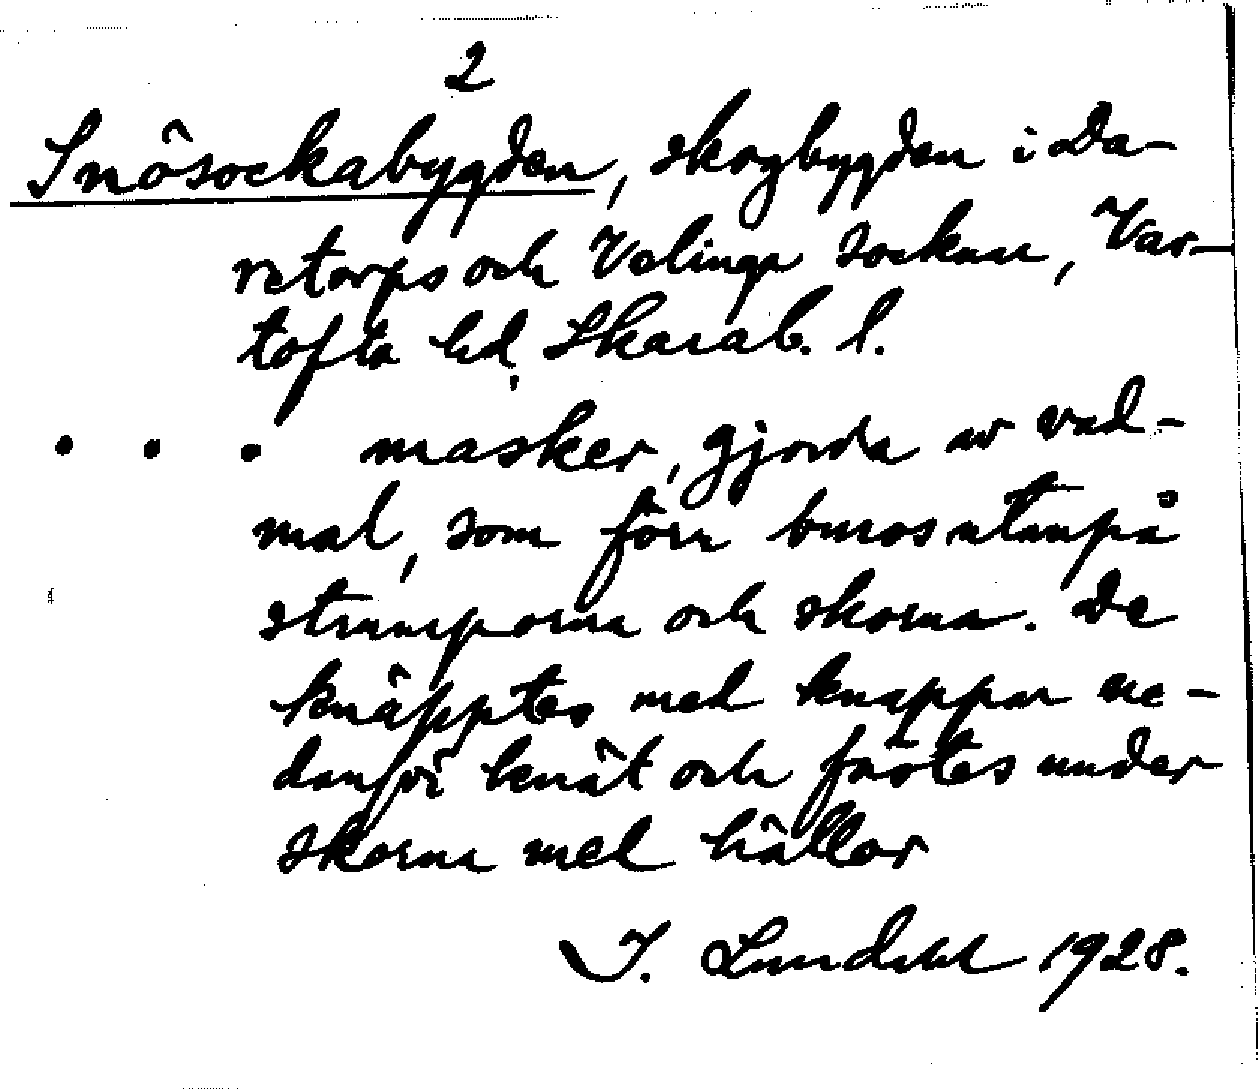 2
Snösockabygden, skogbygden i Da-
retorps och Velinga socknar, Var-
tofta hd, Skarab. l.
. . . masker, gjorda av vad-
mal, som förr buros utanpå
strumporna och skorna. De
knäpptes med knappar ne-
danför knät och fästes under
skorna med hällor
I. Lundahl 1928.